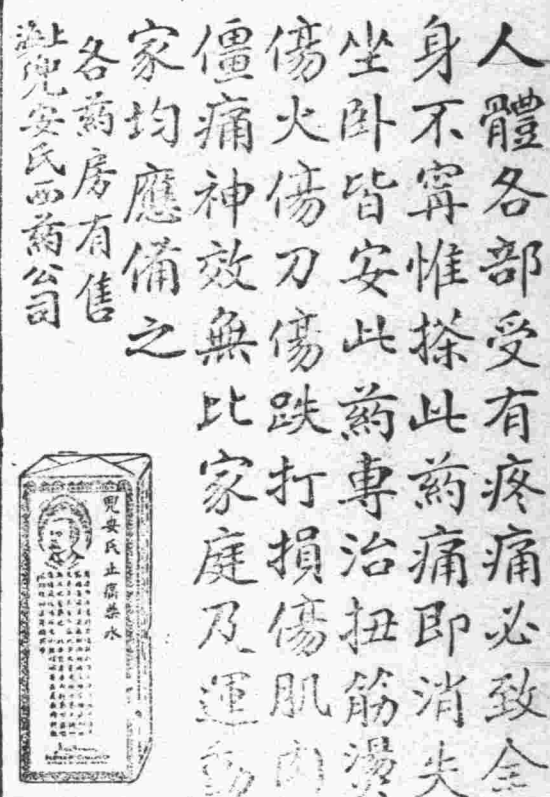 人體各部受有疼痛必致全
身不寧惟搽此药痛即消失
坐卧皆安此药專治扭筋燙
傷火傷刀傷跌打損傷肌肉
僵痛神效無比家庭及運動
家均應備之
各药房有售
上海兜安氏西药公司
兜安氏止痛药水